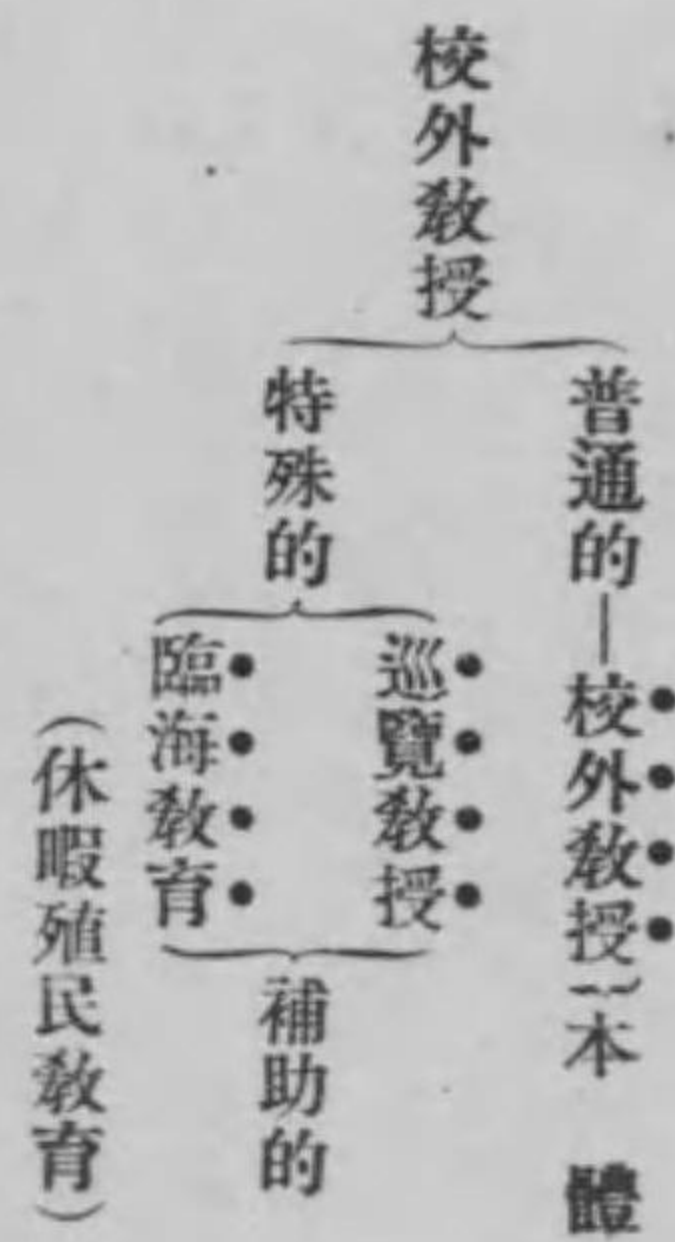 校外敎授
普通的—校外敎授}本體
特殊的
巡覽敎授
臨海敎育
補助的
(休暇殖民敎育)